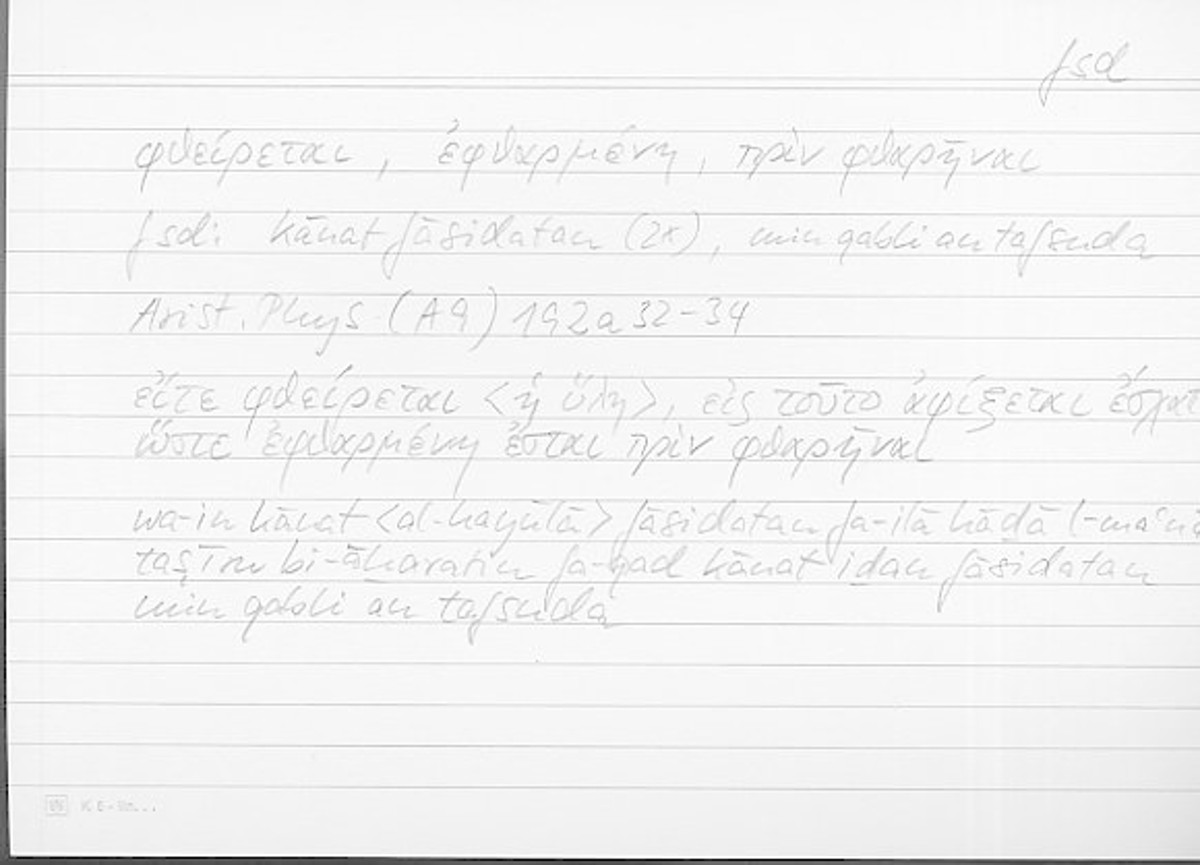 fsd
φθείρεται, ἐφθαρμένη, πρὶν φθαρῆναι
fsd: kānat fāsidatan (2x), min qabli an tafsuda
Arist. Phys. (A9) 192a32-34
εἴτε φθείρεται <ἡ ὕλη>, εἰς τοῦτο ἀφίξεται ἔσχατ
ὥστε ἐφθαρμένη ἔσται πρὶν φθαρῆναι
wa-in kānat <al-hayūlā> fāsidatan fa-ilā hāḏā l-maʿn
taṣīru bi-āḫaratin fa-qad kānat iḏan fāsidatan
min qabli an tafsuda